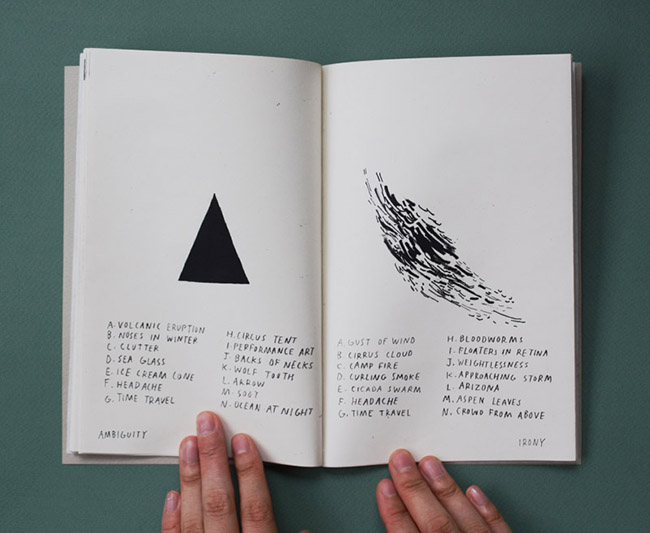 A. VOLCANIC ERUPTION
B. NOSES IN WINTER
C. CLUTTER
D. SEA GLASS
E. ICE CREAM CONE
F. HEADACHE
G. TIME TRAVEL
H. CIRCUS TENT
I. PERFORMANCE ART
J. BACKS OF NECKS
K. WOLF TOOTH
L. ARROW
M. SOOT
N. OCEAN AT NIGHT
AMBIGUITY
A. GUST OF WIND
B. CIRRUS CLOUD
C. CAMP FIRE
D. CURLING SMOKE
E. CICADA SWARM
F. HEADACHE
G. TIME TRAVEL
H. BLOODWORMS
I. FLOATERS IN RETINA
J. WEIGHTLESSNESS
K. APPROACHING STORM
L. ARIZONA
M. ASPEN LEAVES
N. CROWD FROM ABOVE
IRONY